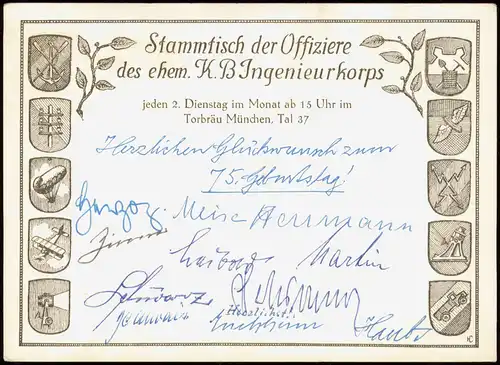 Stammtisch der Offiziere
des ehem. K.B Ingenieurkorps
jeden 2. Dienstag im Monat ab 15 Uhr im
Torbräu München, Tal 37
Herzlichen Glückwunsch zum
75. Geburtstag!
Herzog. Meise Herrmann
Martin
Schwarz
Herzlichst!
HC